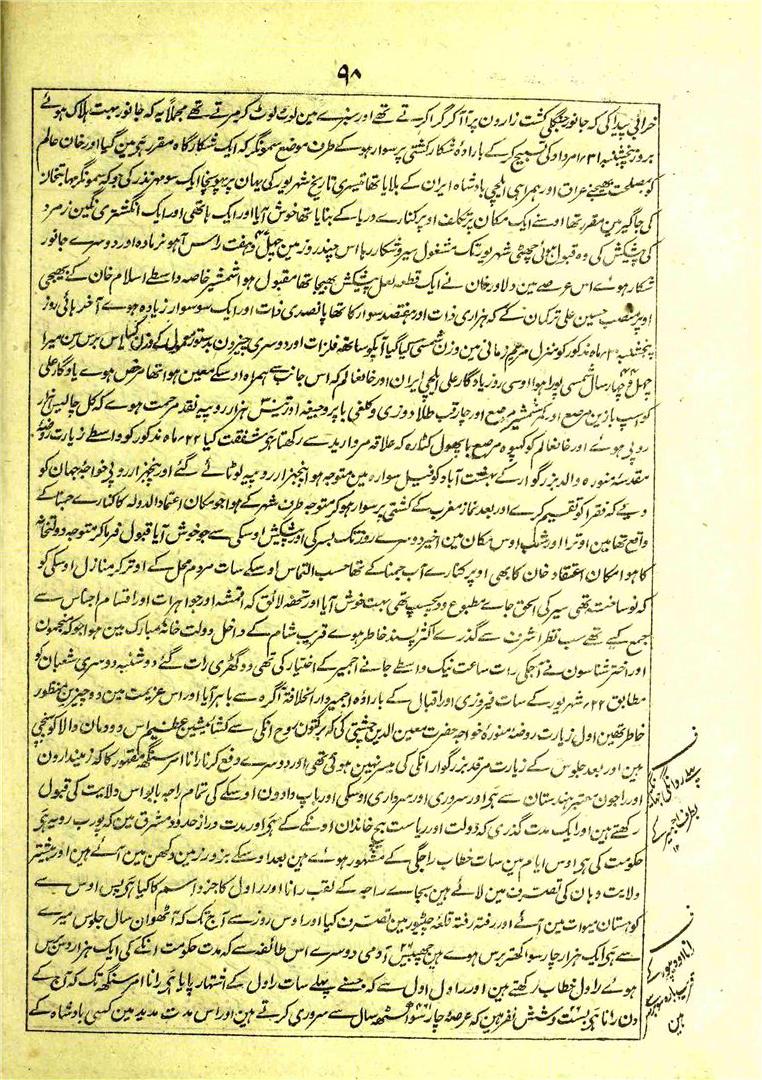 ۹۸
خرابی پیدا کی کہ جانور جنگلی کشت زارون پر آ آ کر گرا کرتے تھے اور سبزے مین لوٹ لوٹ کر مرتے تھے مجملاً یہ کہ جانور بہت ہلاک ہوئے
بروز پنجشنبہ ۱۳؍ امرداد کی تسبیح کر کے بارادہ شکار کشتی پر سوار ہو کے طرف موضع سمونگر کہ ایک شکارگاہ مقرر ہی مین گیا اور خان عالم
کو بمصلحت بھیجنے عراق اور ہمراہی ایلچی بادشاہ ایران کے بلایا تھا تیسری تاریخ شہریور کی یہان پر پہونچا ایک سو مہر نذر کی چونکہ سمونگر مہابتخان
کی جاگیر مین مقرر تھا اوسنے ایک مکان پرتکلف اوپر کنارے دریا کے بنایا تھا خوش آیا اور ایک ہاتھی اور ایک انگشتری نگین زمرد
کی پیشکش کی وہ قبول ہوئی چھٹی شہریور تک مشغول سیر و شکار رہا اس چند روز مین چہل و ہفت راس آہو نر مادہ اور دوسرے جانور
شکار ہوئے اس عرصے مین دلاور خان نے ایک قطعہ لعل پیشکش بھیجا تھا مقبول ہوا شمشیر خاصہ واسطے اسلام خان کے بھیجی
اوپر منصب حسین علی ترکمان کے کہ ہزاری ذات اور ہفتصد سوار کا تھا پانصدی ذات اور ایک سو سوار زیادہ ہوے آخر ہائی روز
پنجشنبہ ۲۰ ماہ مذکور کو منزل مریم زمانی مین وزن شمسی کیا گیا آپکو ساتھ فلزات اور دوسری چیزون بدستور معمول کے وزن کیا اس برس سن میرا
چہل و چہار سال شمسی پورا ہوا اوسی روز یادگار علی ایلچی ایران اور خانعالم کہ اس جانب سے ہمراہ اوسکے معین ہوا تھا مرخص ہوے یادگار علی
کو اسپ بازین مرصع اور کمر شمشیر مرصع اور چارقب طلا دوزی و کلغی با پر وجیغہ اور تیس ہزار روپیہ نقد مرحمت ہوے کہ کل چالیس ہزار
روپی ہوئے اور خانعالم کو کھپوہ مرصع با پھول کٹارہ کہ علاقہ مروارید سے رکھتا ہی شفقت کیا ۲۲؍ ماہ مذکور کو واسطے زیارت روضۂ
مقدسۂ منورہ والد بزرگوار کے بہشت آباد کو فیل سوارہ مین متوجہ ہوا پنجہزار روپیہ لوٹائے گئے اور پنجہزار روپی خواجۂ جہان کو
دیئے کہ فقرا کو تقسیم کرے اور بعد نماز مغرب کے کشتی پر سوار ہو کر متوجہ طرف شہر کے ہوا چو مکان اعتمادالدولہ کا کنارے جمنا کے
واقع تھا مین اوترا اور شب اوس مکان مین اخیر دوسرے روز تک بسر کی اور پیشکش اوسکی سے جو خوش آیا قبول فرما کر متوجہ دولتخانہ
کا ہوا مکان اعتقاد خان کا بھی اوپر کنارے آب جمنا کے تھا حسب التماس اوسکے سات مردم محل کے اوتر کر بہ منازل اوسکی کو
کہ نوساختہ تھی سیر کی الحق جاے مطبوع و دلچسپ تھی بہت خوش آیا اور تحفہ لائق کہ اقمشہ اور جواہرات اور اقسام اجناس سے
جمع کیے تھے سب نظر اشرف سے گذرے اکثر پسند خاطر ہوے قریب شام کے داخل دولت خانۂ مبارک مین ہوا چو کہ منجمون
اور اختر شناسون نے آجکی رات ساعت نیک واسطے جانے اجمیر کے اختیار کی تھی دو گھڑی رات گئے دوشنبہ دوسری شعبان کو
مطابق ۲۴؍ شہریور کے سات فیروزی اور اقبال کے بارادہ اجمیر دارالخلافۃ آگرہ سے باہر آیا اور اس عزیمت مین دو چیزین منظور
خاطر تھین اول زیارت روضۂ منورہ خواجہ حضرت معین الدین چشتی کی کہ برکتون روح انکی سے کشایشین عظیم اس دودمان والا کو پہنچی
ہین اور بعد جلوس کے زیارت مرقد بزرگوار انکی کی میسر نہین ہوئی تھی اور دوسرے دفع کرنا رانا امر سنگھ مقہور کا کہ زمیندارون
اور راجون معتبر ہندستان سے ہی اور سروری اور سرداری اوسکی اور باپ دادون اوسکے کی تمام راجہ بابو اس ولایت کی قبول
رکھتے ہین اور ایک مدت گذری کہ دولت اور ریاست بیچ خاندان اونکے کے ہی اور مدت دراز حدود مشرق مین کہ پورب رویہ ہی
حکومت کی ہی اوس ایام مین سات خطاب راجگی کے مشہور ہوئے ہین بعد اوسکے بزور زمین دکھن مین آئے ہین اور بیشتر
ولایت وہان کی تصرف مین لائے ہین بجائے راجہ کے لقب رانا اور راول کا جزو اسم کا کیا ہی پس اوس سے
کوہستان میوات مین آئے اور رفتہ رفتہ قلعۂ چتور مین تصرف کیا اور اوس روز سے آج تک کہ آٹھوان سال جلوس میرے
سے ہی ایک ہزار چار سو اکہتر برس ہوے ہین چھبیس ۲۶ آدمی دوسرے اس طائفہ سے کہ مدت حکومت انکے کی ایک ہزار دس برس
ہوے راول خطاب رکھتے ہین اور راول اول سے کہ جسنے پہلے سات راول کے اشتہار پایا ہی رانا امر سنگھ تک کہ آج کے
دن رانا ہی بست و شش نفر ہین کہ عرصۂ چار سو اکسٹھ سال سے سروری کرتے ہین اور اس مدت مدید مین کسی بادشاہ کے
ف
بطرف اجمیر کے
۱۲
ف
ہین